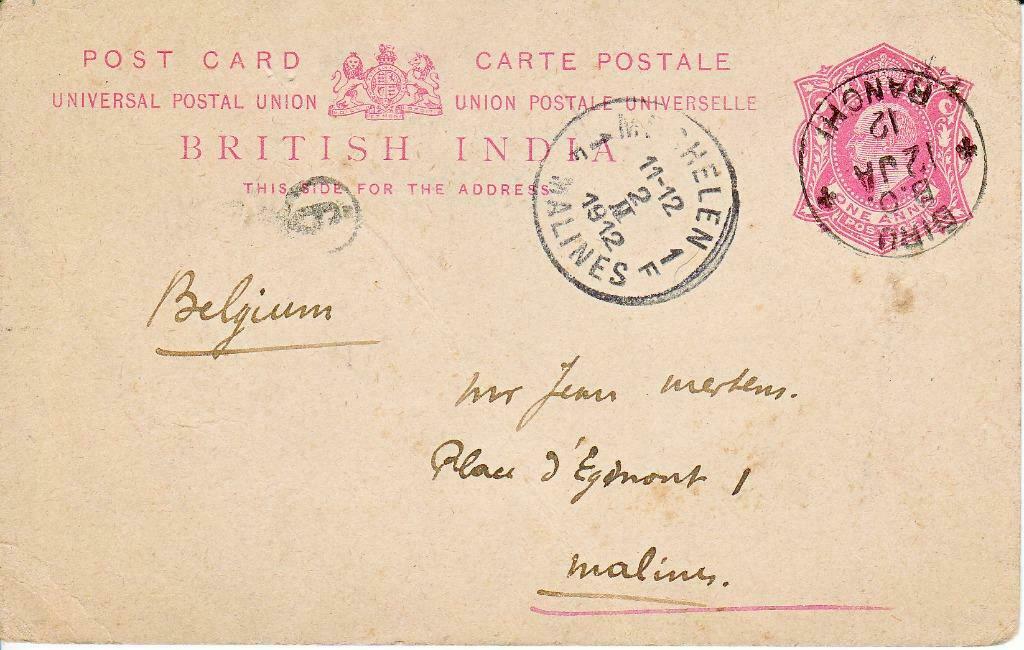 POST CARD CARTE POSTALE
UNIVERSAL POSTAL UNION UNION POSTALE UNIVERSELLE
BRITISH INDIA
THIS SIDE FOR THE ADDRESS
ONE ANNA
BIRU B.O.
12 JA
12
RANCHI
MECHELEN
1 F 1 F
11-12
2
II
1912
MALINES
Belgium
Mr Jean Mertens.
Place d'Egmont 1
Malines.